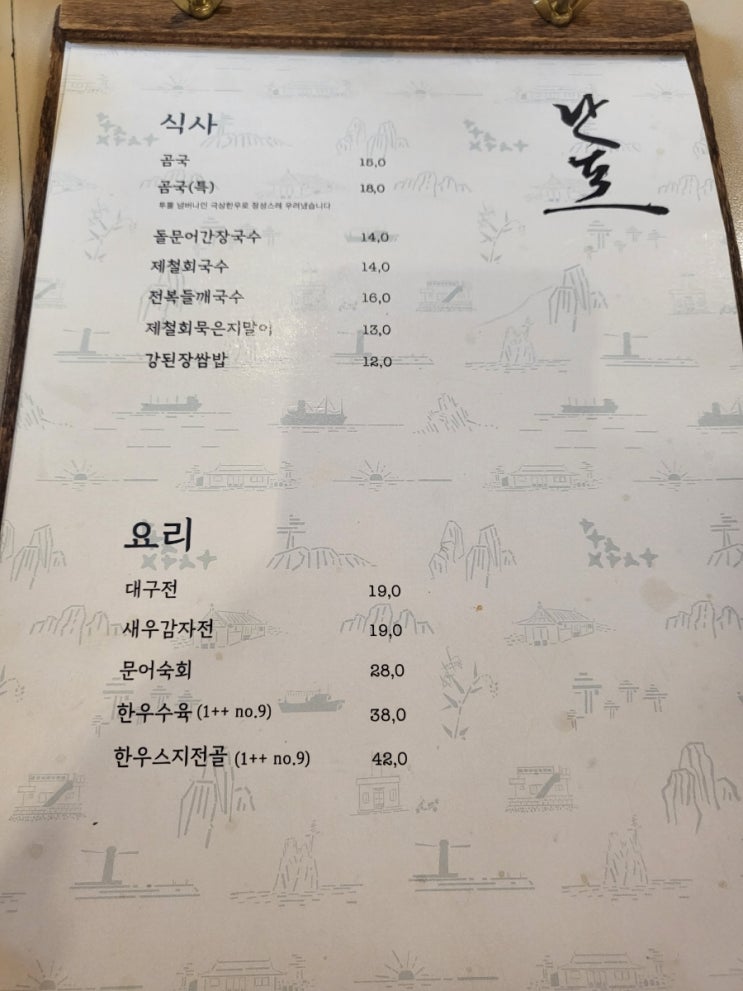 반도
식사
곰국 15,0
곰국(특) 18,0
투뿔 넘버나인 극상한우로 정성스레 우려냈습니다
돌문어간장국수 14,0
제철회국수 14,0
전복들깨국수 16,0
제철회묵은지말이 13,0
강된장쌈밥 12,0
요리
대구전 19,0
새우감자전 19,0
문어숙회 28,0
한우수육 (1++ no.9) 38,0
한우스지전골 (1++ no.9) 42,0